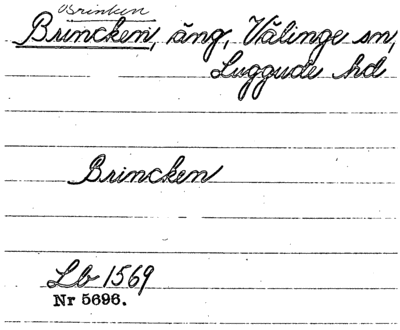 Brinken
Brincken, äng, Välinge sn,
Luggude hd
Brincken
Lb 1569
Nr 5696.